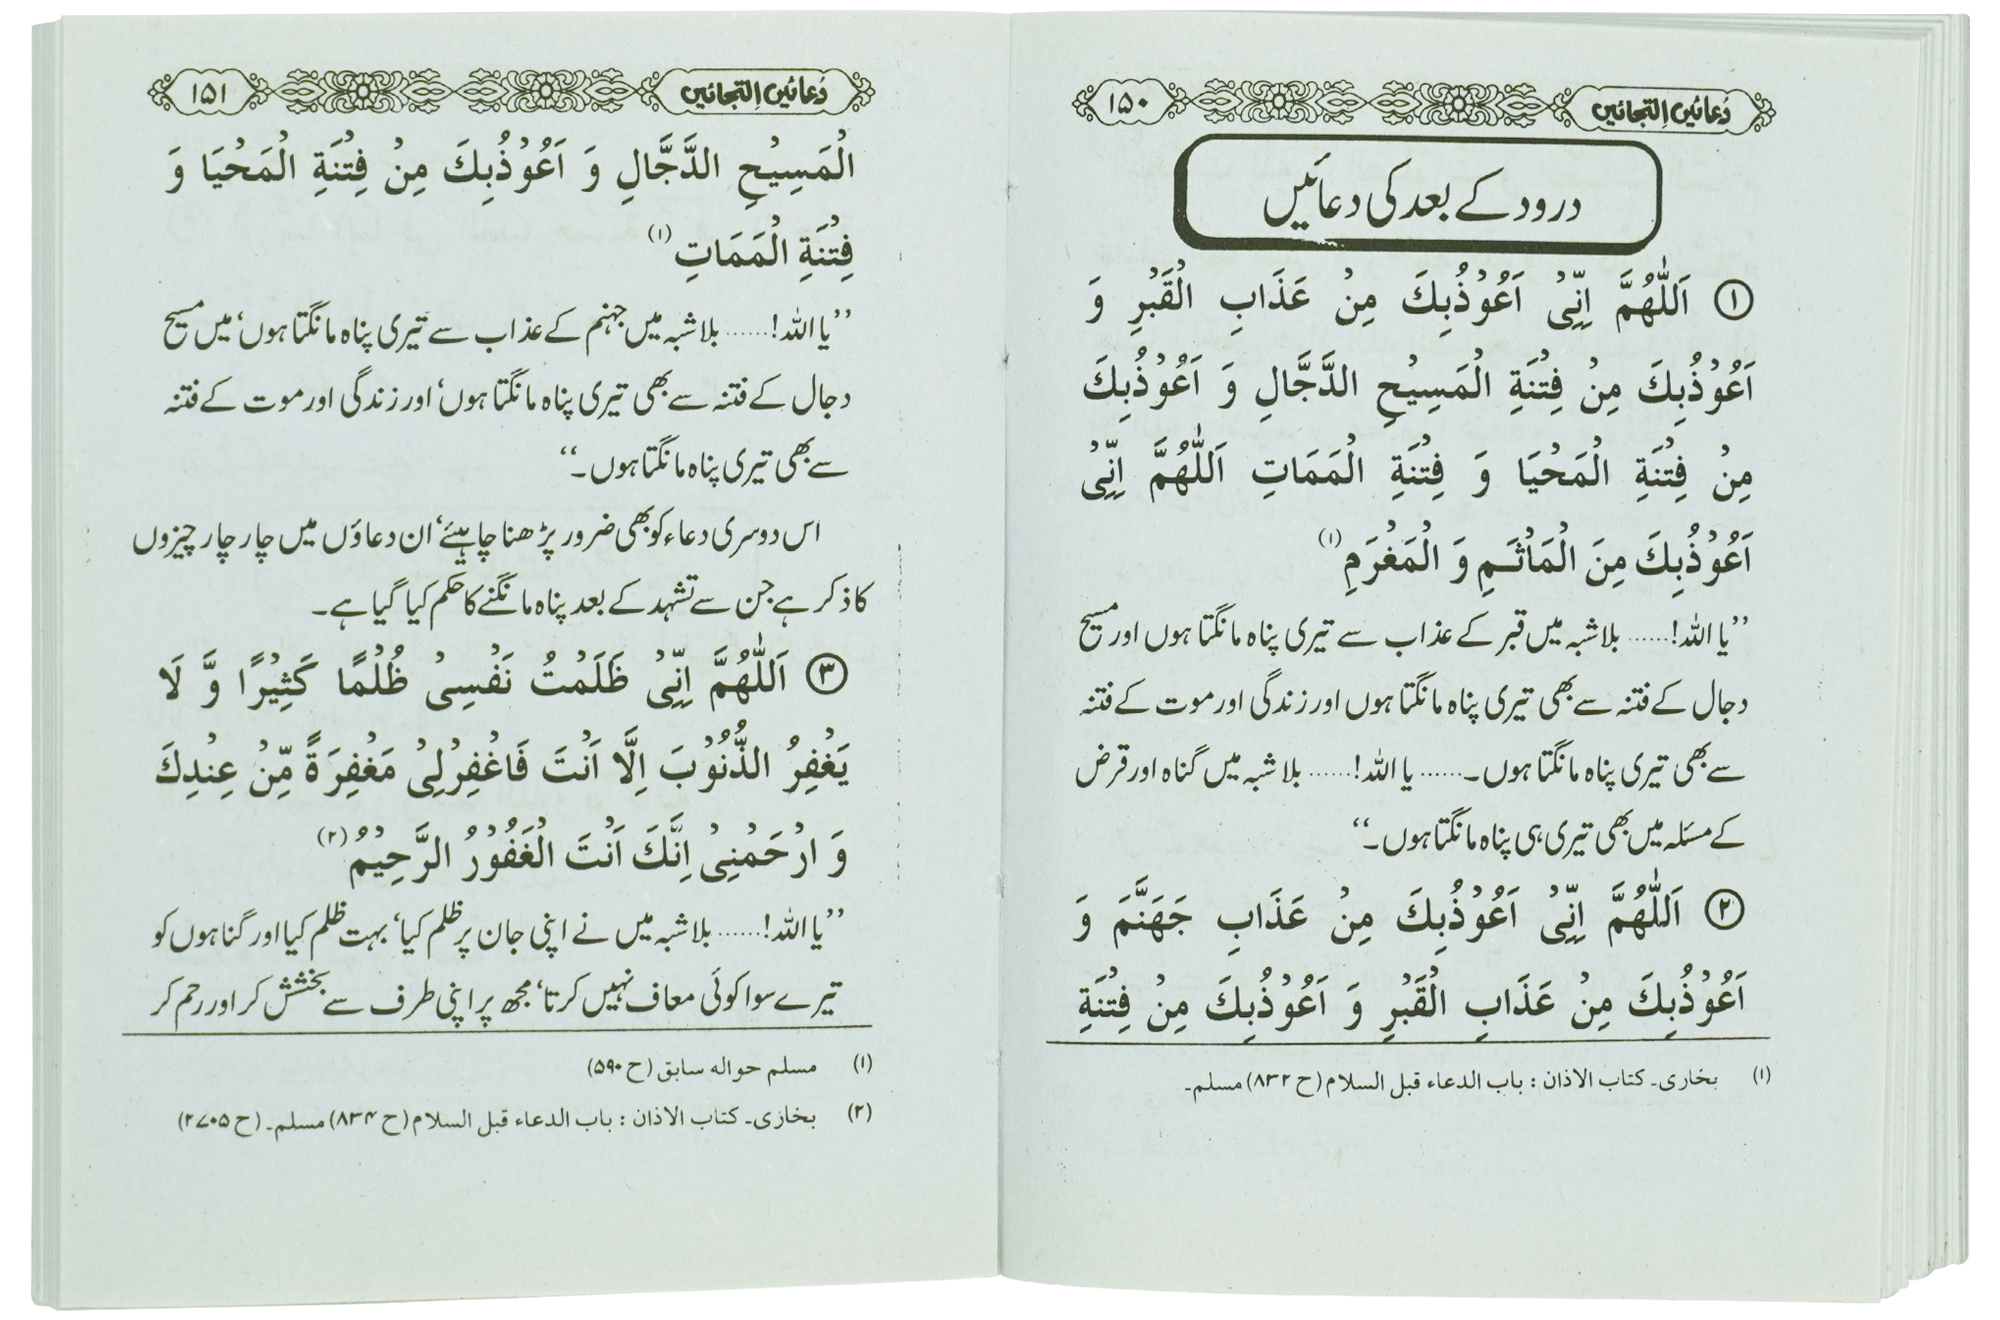 دُعائیں اِلتجائیں
۱۵۰
درود کے بعد کی دعائیں
① اَللّٰھُمَّ اِنِّیْ اَعُوْذُبِکَ مِنْ عَذَابِ الْقَبْرِ وَ
اَعُوْذُبِکَ مِنْ فِتْنَةِ الْمَسِیْحِ الدَّجَّالِ وَ اَعُوْذُبِکَ
مِنْ فِتْنَةِ الْمَحْیَا وَ فِتْنَةِ الْمَمَاتِ اَللّٰھُمَّ اِنِّیْ
اَعُوْذُبِکَ مِنَ الْمَاْثَمِ وَ الْمَغْرَمِ (۱)
’’یا اللہ!...... بلاشبہ میں قبر کے عذاب سے تیری پناہ مانگتا ہوں اور مسیح
دجال کے فتنہ سے بھی تیری پناہ مانگتا ہوں اور زندگی اور موت کے فتنہ
سے بھی تیری پناہ مانگتا ہوں۔...... یا اللہ!...... بلا شبہ میں گناہ اور قرض
کے مسئلہ میں بھی تیری ہی پناہ مانگتا ہوں۔‘‘
② اَللّٰھُمَّ اِنِّیْ اَعُوْذُبِکَ مِنْ عَذَابِ جَهَنَّمَ وَ
اَعُوْذُبِکَ مِنْ عَذَابِ الْقَبْرِ وَ اَعُوْذُبِکَ مِنْ فِتْنَةِ
(۱) بخاری۔ کتاب الاذان : باب الدعاء قبل السلام (ح ۸۳۲) مسلم۔
دُعائیں اِلتجائیں
۱۵۱
الْمَسِیْحِ الدَّجَّالِ وَ اَعُوْذُبِکَ مِنْ فِتْنَةِ الْمَحْیَا وَ
فِتْنَةِ الْمَمَاتِ (۱)
’’یا اللہ!...... بلاشبہ میں جہنم کے عذاب سے تیری پناہ مانگتا ہوں‘ میں مسیح
دجال کے فتنہ سے بھی تیری پناہ مانگتا ہوں‘ اور زندگی اور موت کے فتنہ
سے بھی تیری پناہ مانگتا ہوں۔‘‘
اس دوسری دعاء کو بھی ضرور پڑھنا چاہیئے‘ ان دعاؤں میں چار چار چیزوں
کا ذکر ہے جن سے تشہد کے بعد پناہ مانگنے کا حکم کیا گیا ہے۔
③ اَللّٰھُمَّ اِنِّیْ ظَلَمْتُ نَفْسِیْ ظُلْمًا کَثِیْرًا وَّ لَا
یَغْفِرُ الذُّنُوْبَ اِلَّا اَنْتَ فَاغْفِرْلِیْ مَغْفِرَةً مِّنْ عِنْدِکَ
وَ ارْحَمْنِیْ اِنَّکَ اَنْتَ الْغَفُوْرُ الرَّحِیْمُ (۲)
’’یا اللہ!...... بلاشبہ میں نے اپنی جان پر ظلم کیا‘ بہت ظلم کیا اور گناہوں کو
تیرے سوا کوئی معاف نہیں کرتا‘ مجھ پر اپنی طرف سے بخشش کر اور رحم کر
(۱) مسلم حوالہ سابق (ح ۵۹۰)
(۲) بخاری۔ کتاب الاذان : باب الدعاء قبل السلام (ح ۸۳۴) مسلم۔ (ح ۲۷۰۵)